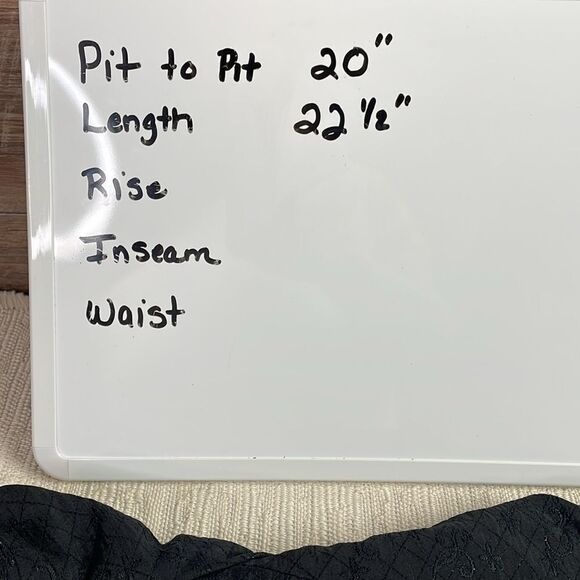 Pit to Pit 20"
Length 22 1/2"
Rise
Inseam
Waist